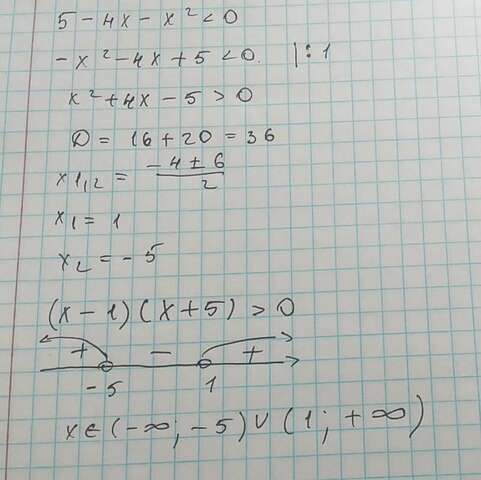 5 - 4x - x² < 0
-x² - 4x + 5 < 0. | : 1
x² + 4x - 5 > 0
D = 16 + 20 = 36
x1,2 = (-4 ± 6)/2
x1 = 1
x2 = -5
(x - 1)(x + 5) > 0
+ - +
-5 1
x ∈ (-∞; -5) ∪ (1; +∞)